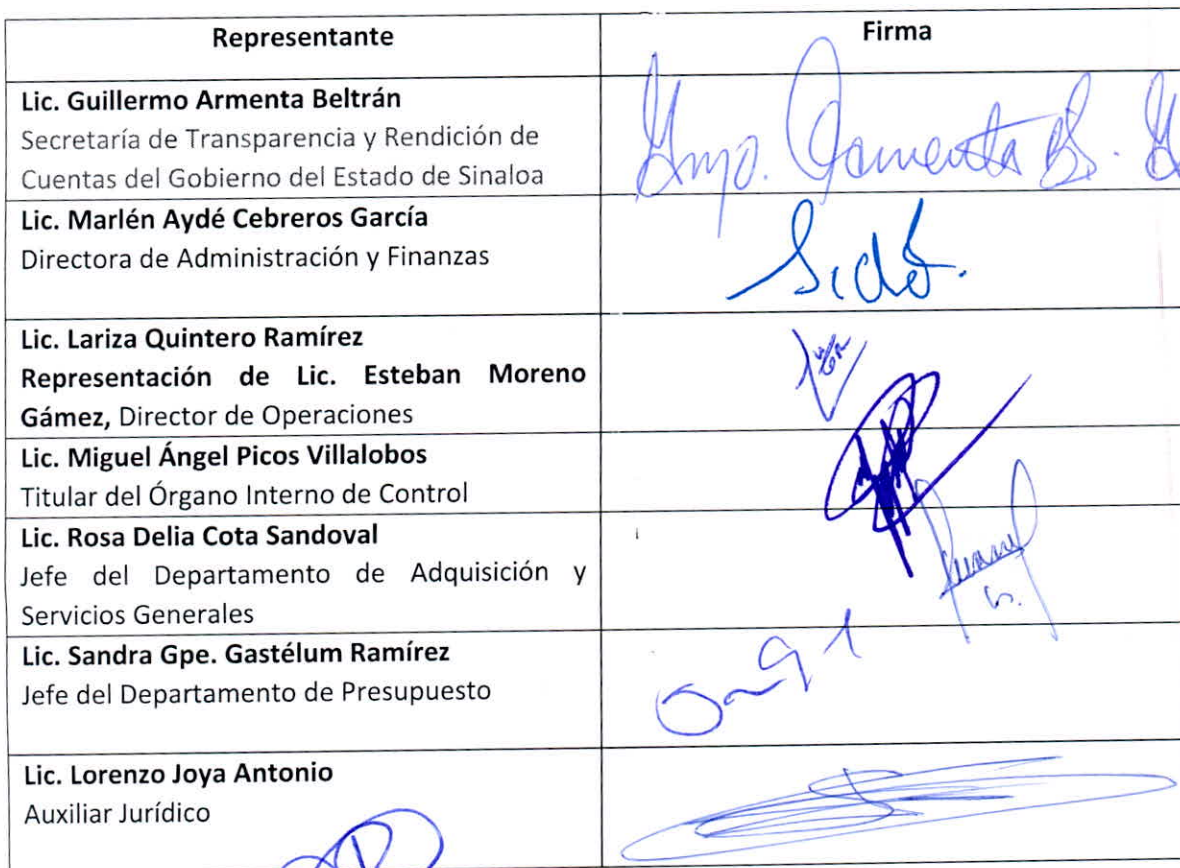 Representante
Firma
Lic. Guillermo Armenta Beltrán
Secretaría de Transparencia y Rendición de
Cuentas del Gobierno del Estado de Sinaloa
Gmo. Armenta B.
Lic. Marlén Aydé Cebreros García
Directora de Administración y Finanzas
Lic. Lariza Quintero Ramírez
Representación de Lic. Esteban Moreno
Gámez, Director de Operaciones
Lic. Miguel Ángel Picos Villalobos
Titular del Órgano Interno de Control
Lic. Rosa Delia Cota Sandoval
Jefe del Departamento de Adquisición y
Servicios Generales
Lic. Sandra Gpe. Gastélum Ramírez
Jefe del Departamento de Presupuesto
Lic. Lorenzo Joya Antonio
Auxiliar Jurídico